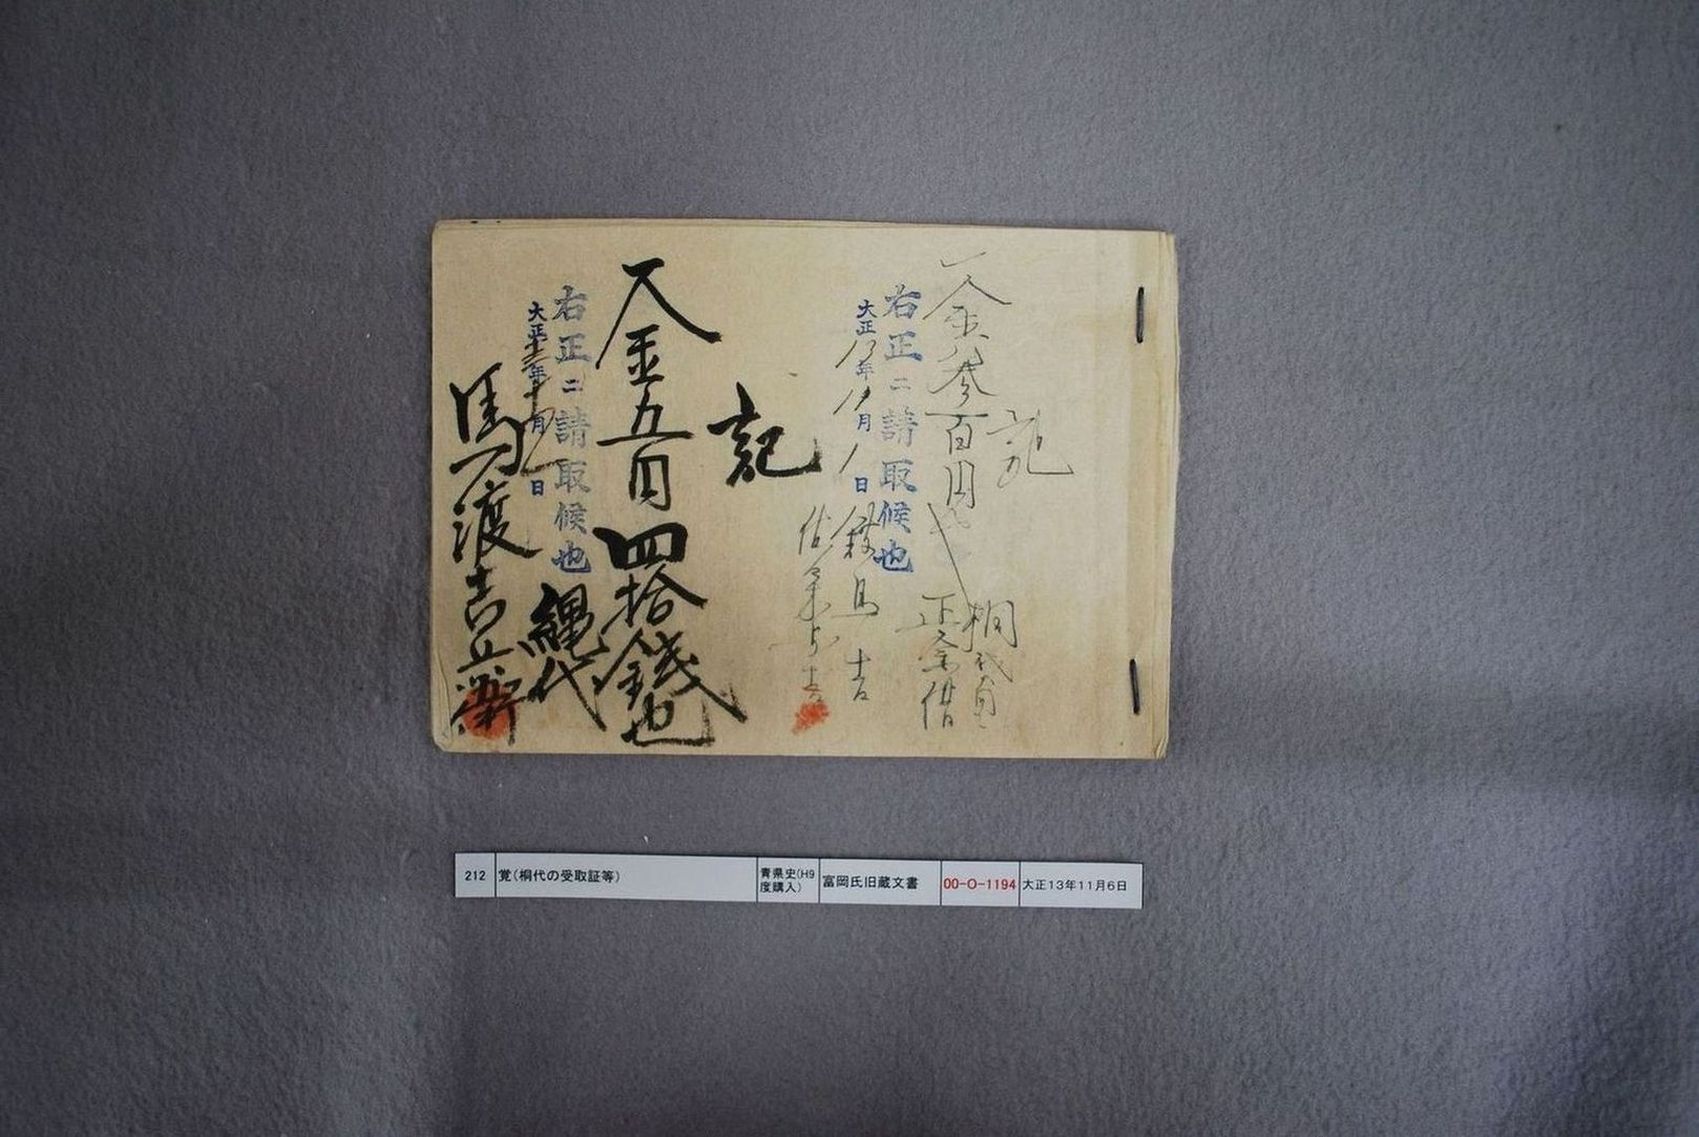 記
一金参百円也
桐代
右正ニ請取候也
大正13年11月1日
記
一金五円四拾銭也
縄代
右正ニ請取候也
大正十三年十一月 日
馬渡吉兵衛
212 覚(桐代の受取証等) 青県史(H9度購入) 富岡氏旧蔵文書 00-O-1194 大正13年11月6日